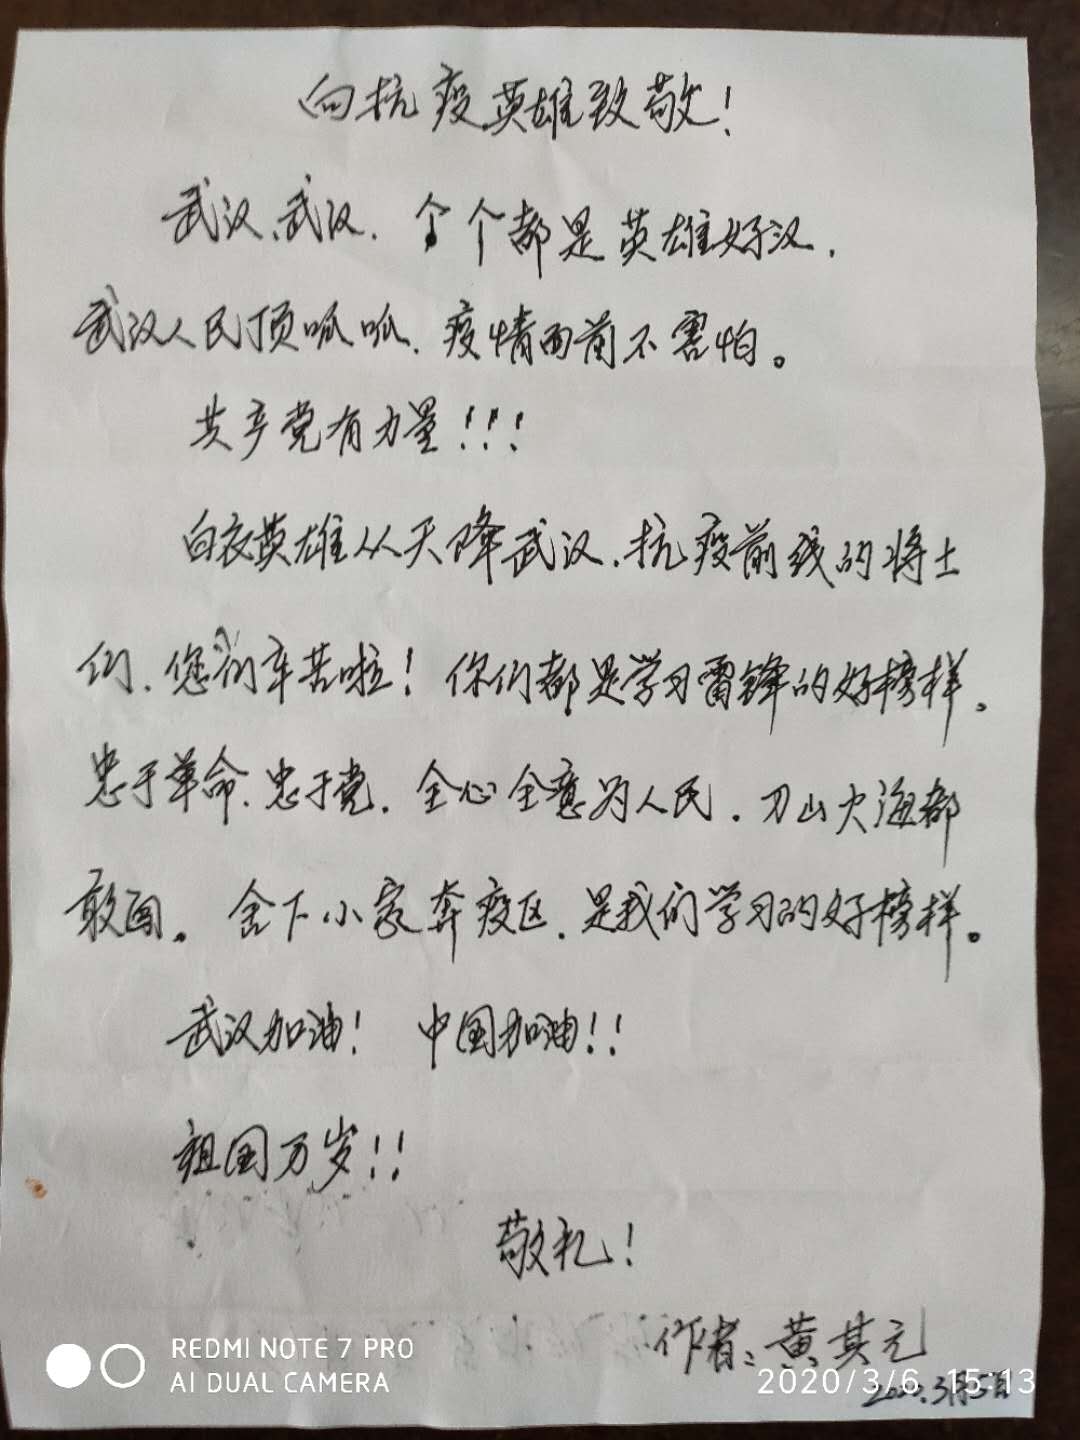 向抗疫英雄致敬!
武汉、武汉,个个都是英雄好汉,
武汉人民顶呱呱,疫情面前不害怕。
共产党有力量!!!
白衣英雄从天降武汉,抗疫前线的将士
们,您们辛苦啦!你们都是学习雷锋的好榜样。
忠于革命、忠于党,全心全意为人民,刀山火海都
敢闯。舍下小家奔疫区,是我们学习的好榜样。
武汉加油! 中国加油!!
祖国万岁!!
敬礼!
作者:黄其元
2020.3月5日
REDMI NOTE 7 PRO
AI DUAL CAMERA
2020/3/6 15:13